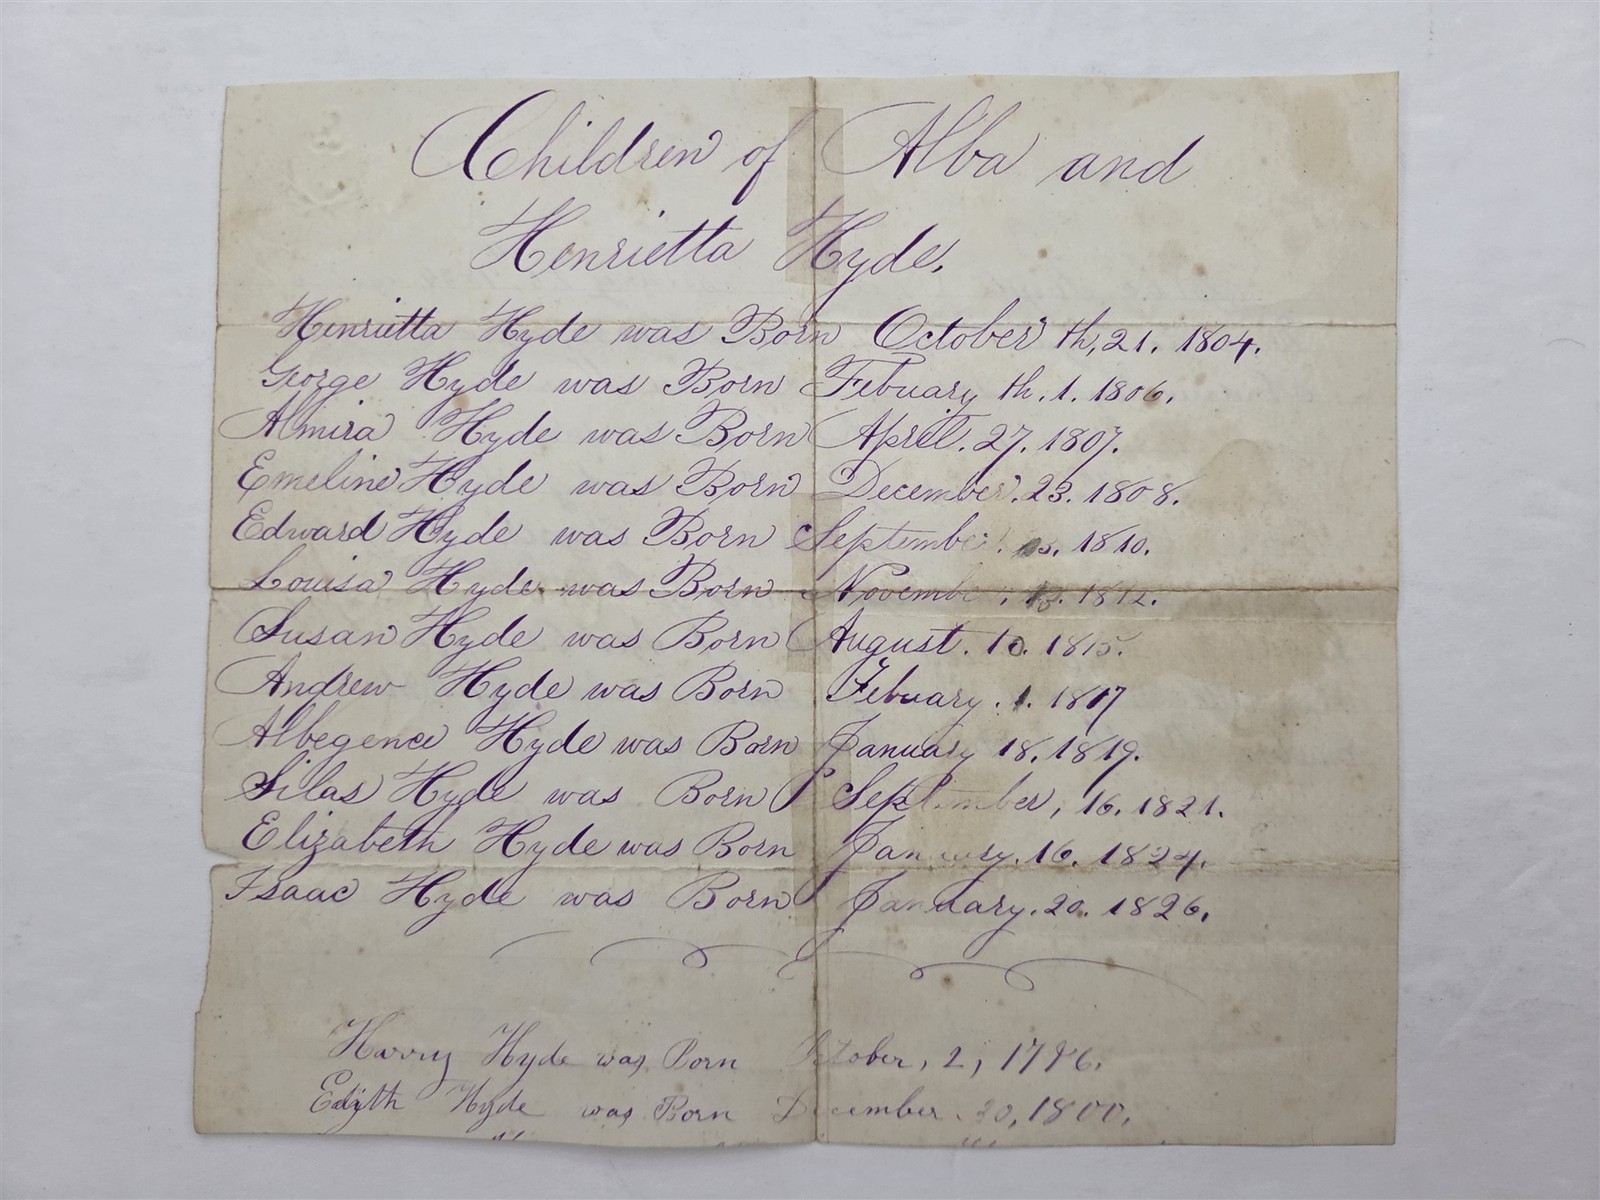 Children of Alba and
Henrietta Hyde.
Henrietta Hyde was Born October th, 21. 1804.
George Hyde was Born Febuary th. 1. 1806.
Almira Hyde was Born April. 27. 1807.
Emeline Hyde was Born December. 23. 1808.
Edward Hyde was Born September. 1810.
Louisa Hyde was Born November. 1812.
Susan Hyde was Born August. 10. 1815.
Andrew Hyde was Born Febuary. 1. 1817
Albegence Hyde was Born January 18. 1819.
Silas Hyde was Born September, 16. 1821.
Elizabeth Hyde was Born January. 16. 1824.
Isaac Hyde was Born January. 20. 1826.
Harry Hyde was Born October, 2,
Edyth Hyde was Born December. 1800.